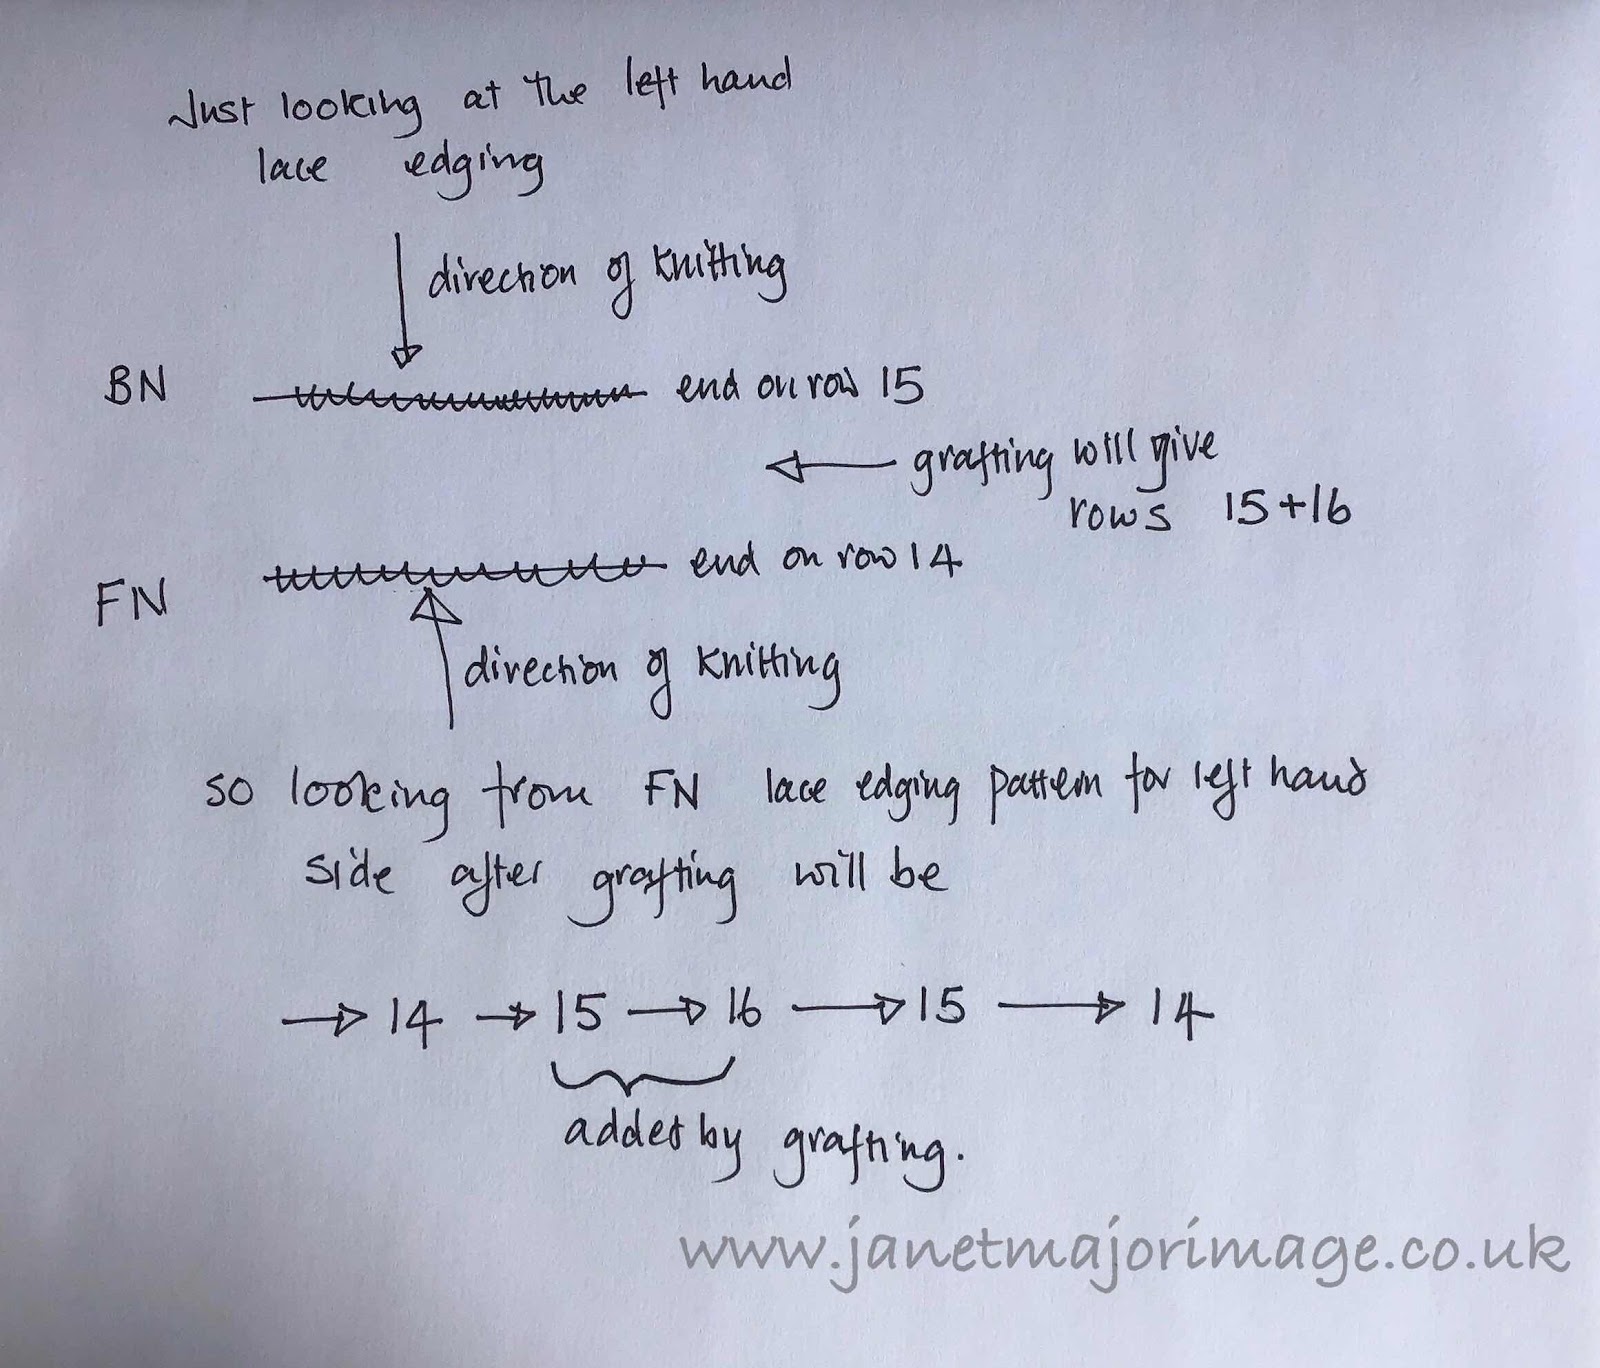 Just looking at the left hand
lace edging
direction of knitting
BN end on row 15
grafting will give
rows 15+16
FN end on row 14
direction of knitting
so looking from FN lace edging pattern for left hand
side after grafting will be
14 15 16 15 14
added by grafting.
www.janetmajorimage.co.uk